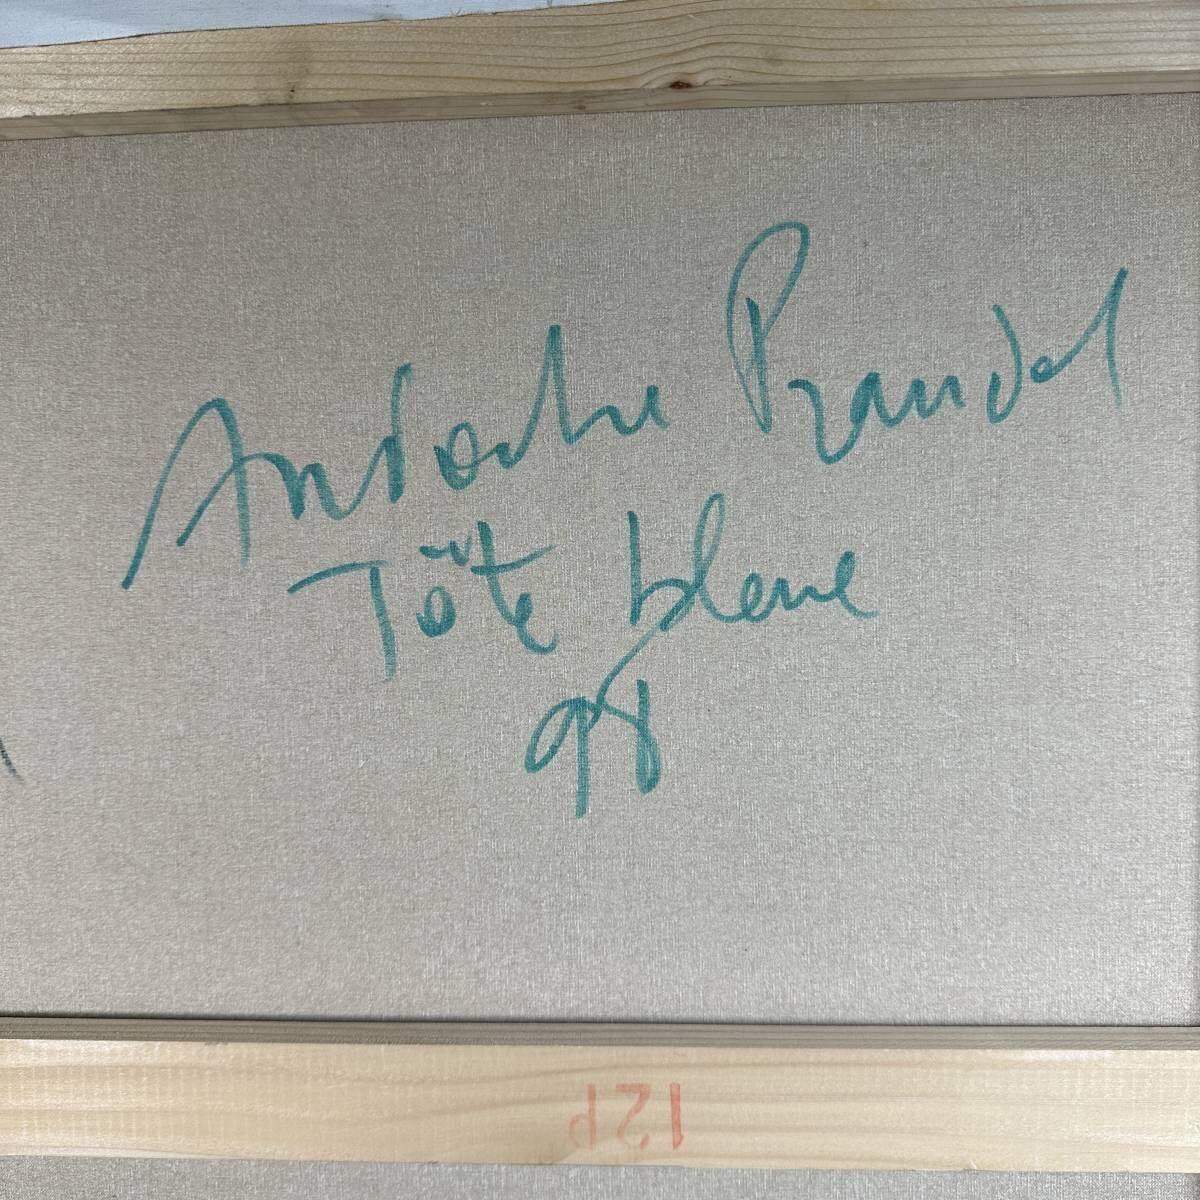 Antoche Prandel
Tôte bleue
98
12P